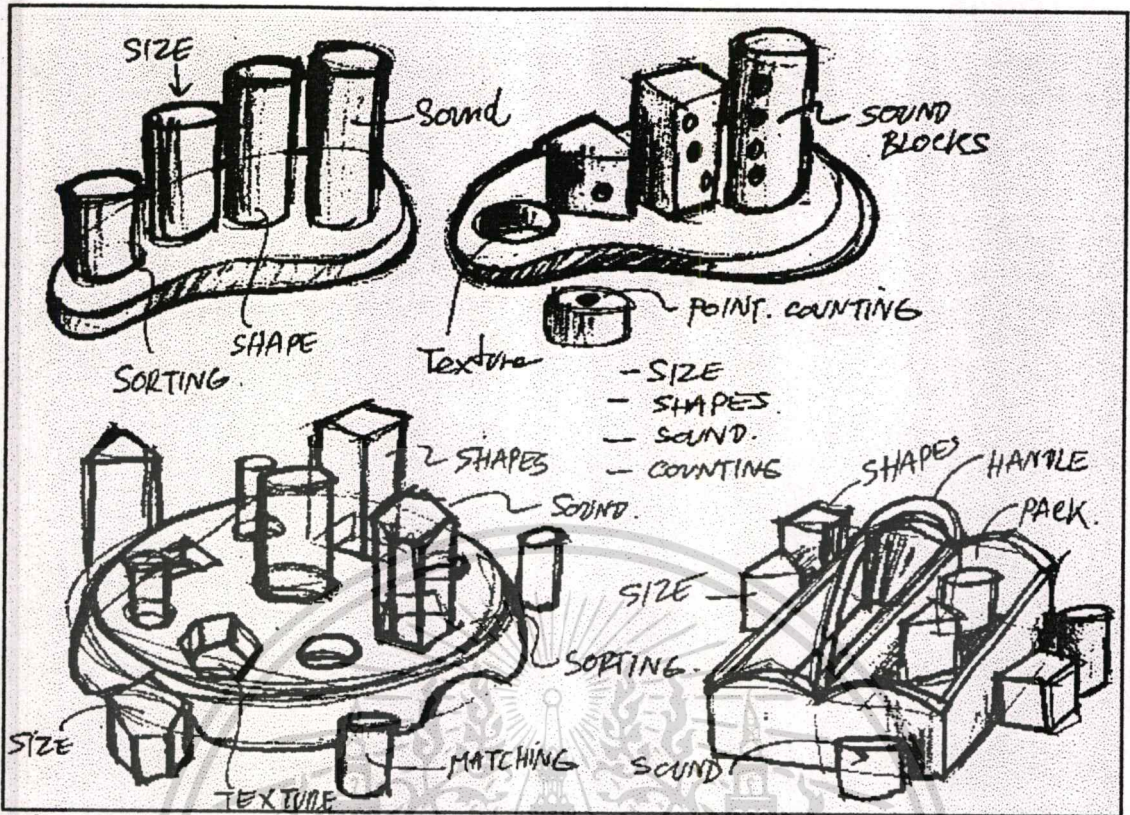 SIZE
Sound
SORTING.
SHAPE
SOUND
BLOCKS
Texture
POINT. COUNTING
- SIZE
- SHAPES.
- SOUND.
- COUNTING
SHAPES
SOUND.
SORTING.
SIZE
TEXTURE
MATCHING
SHAPES
HANDLE
PACK.
SIZE
SOUND